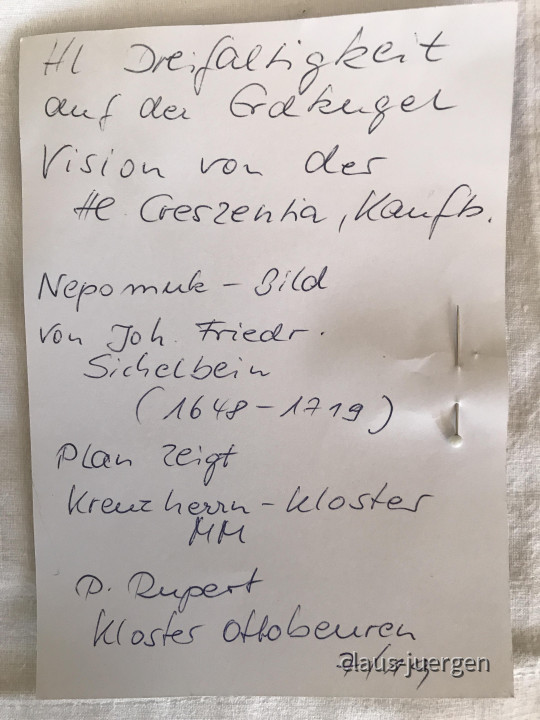 Hl Dreifaltigkeit
auf der Erdkugel
Vision von der
Hl. Creszentia, Kaufb.
Nepomuk - Bild
von Joh. Friedr.
Sichelbein
(1648-1719)
Plan zeigt
Kreuzherrn - Kloster
MM
P. Rupert
Kloster Ottobeuren
@laus-juergen